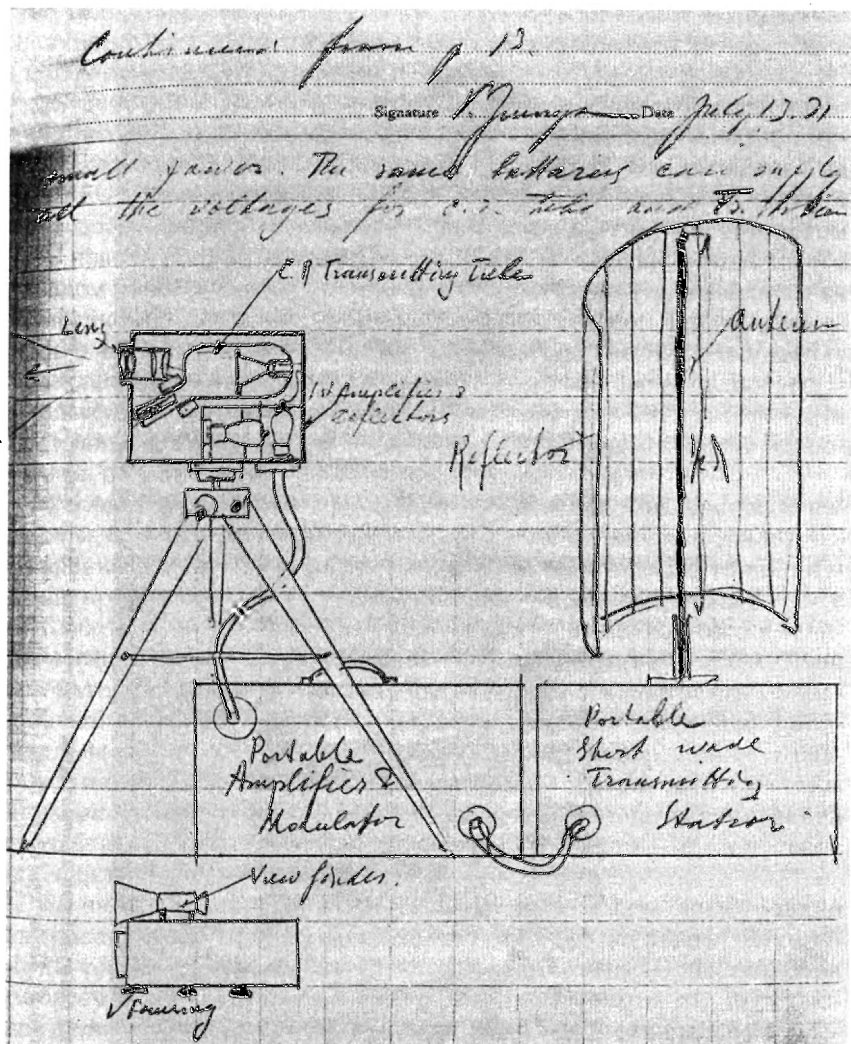 Continued from p 13.
Signature Date July 13. 31
small power. The same batteries can supply
all the voltages for c.r. tube and
C.R Transmitting Tube
Lens
1st Amplifier &
Deflectors
Antenna
Reflector
Portable
Amplifier &
Modulator
Portable
Short wave
Transmitting
Station
View finder.
Focusing